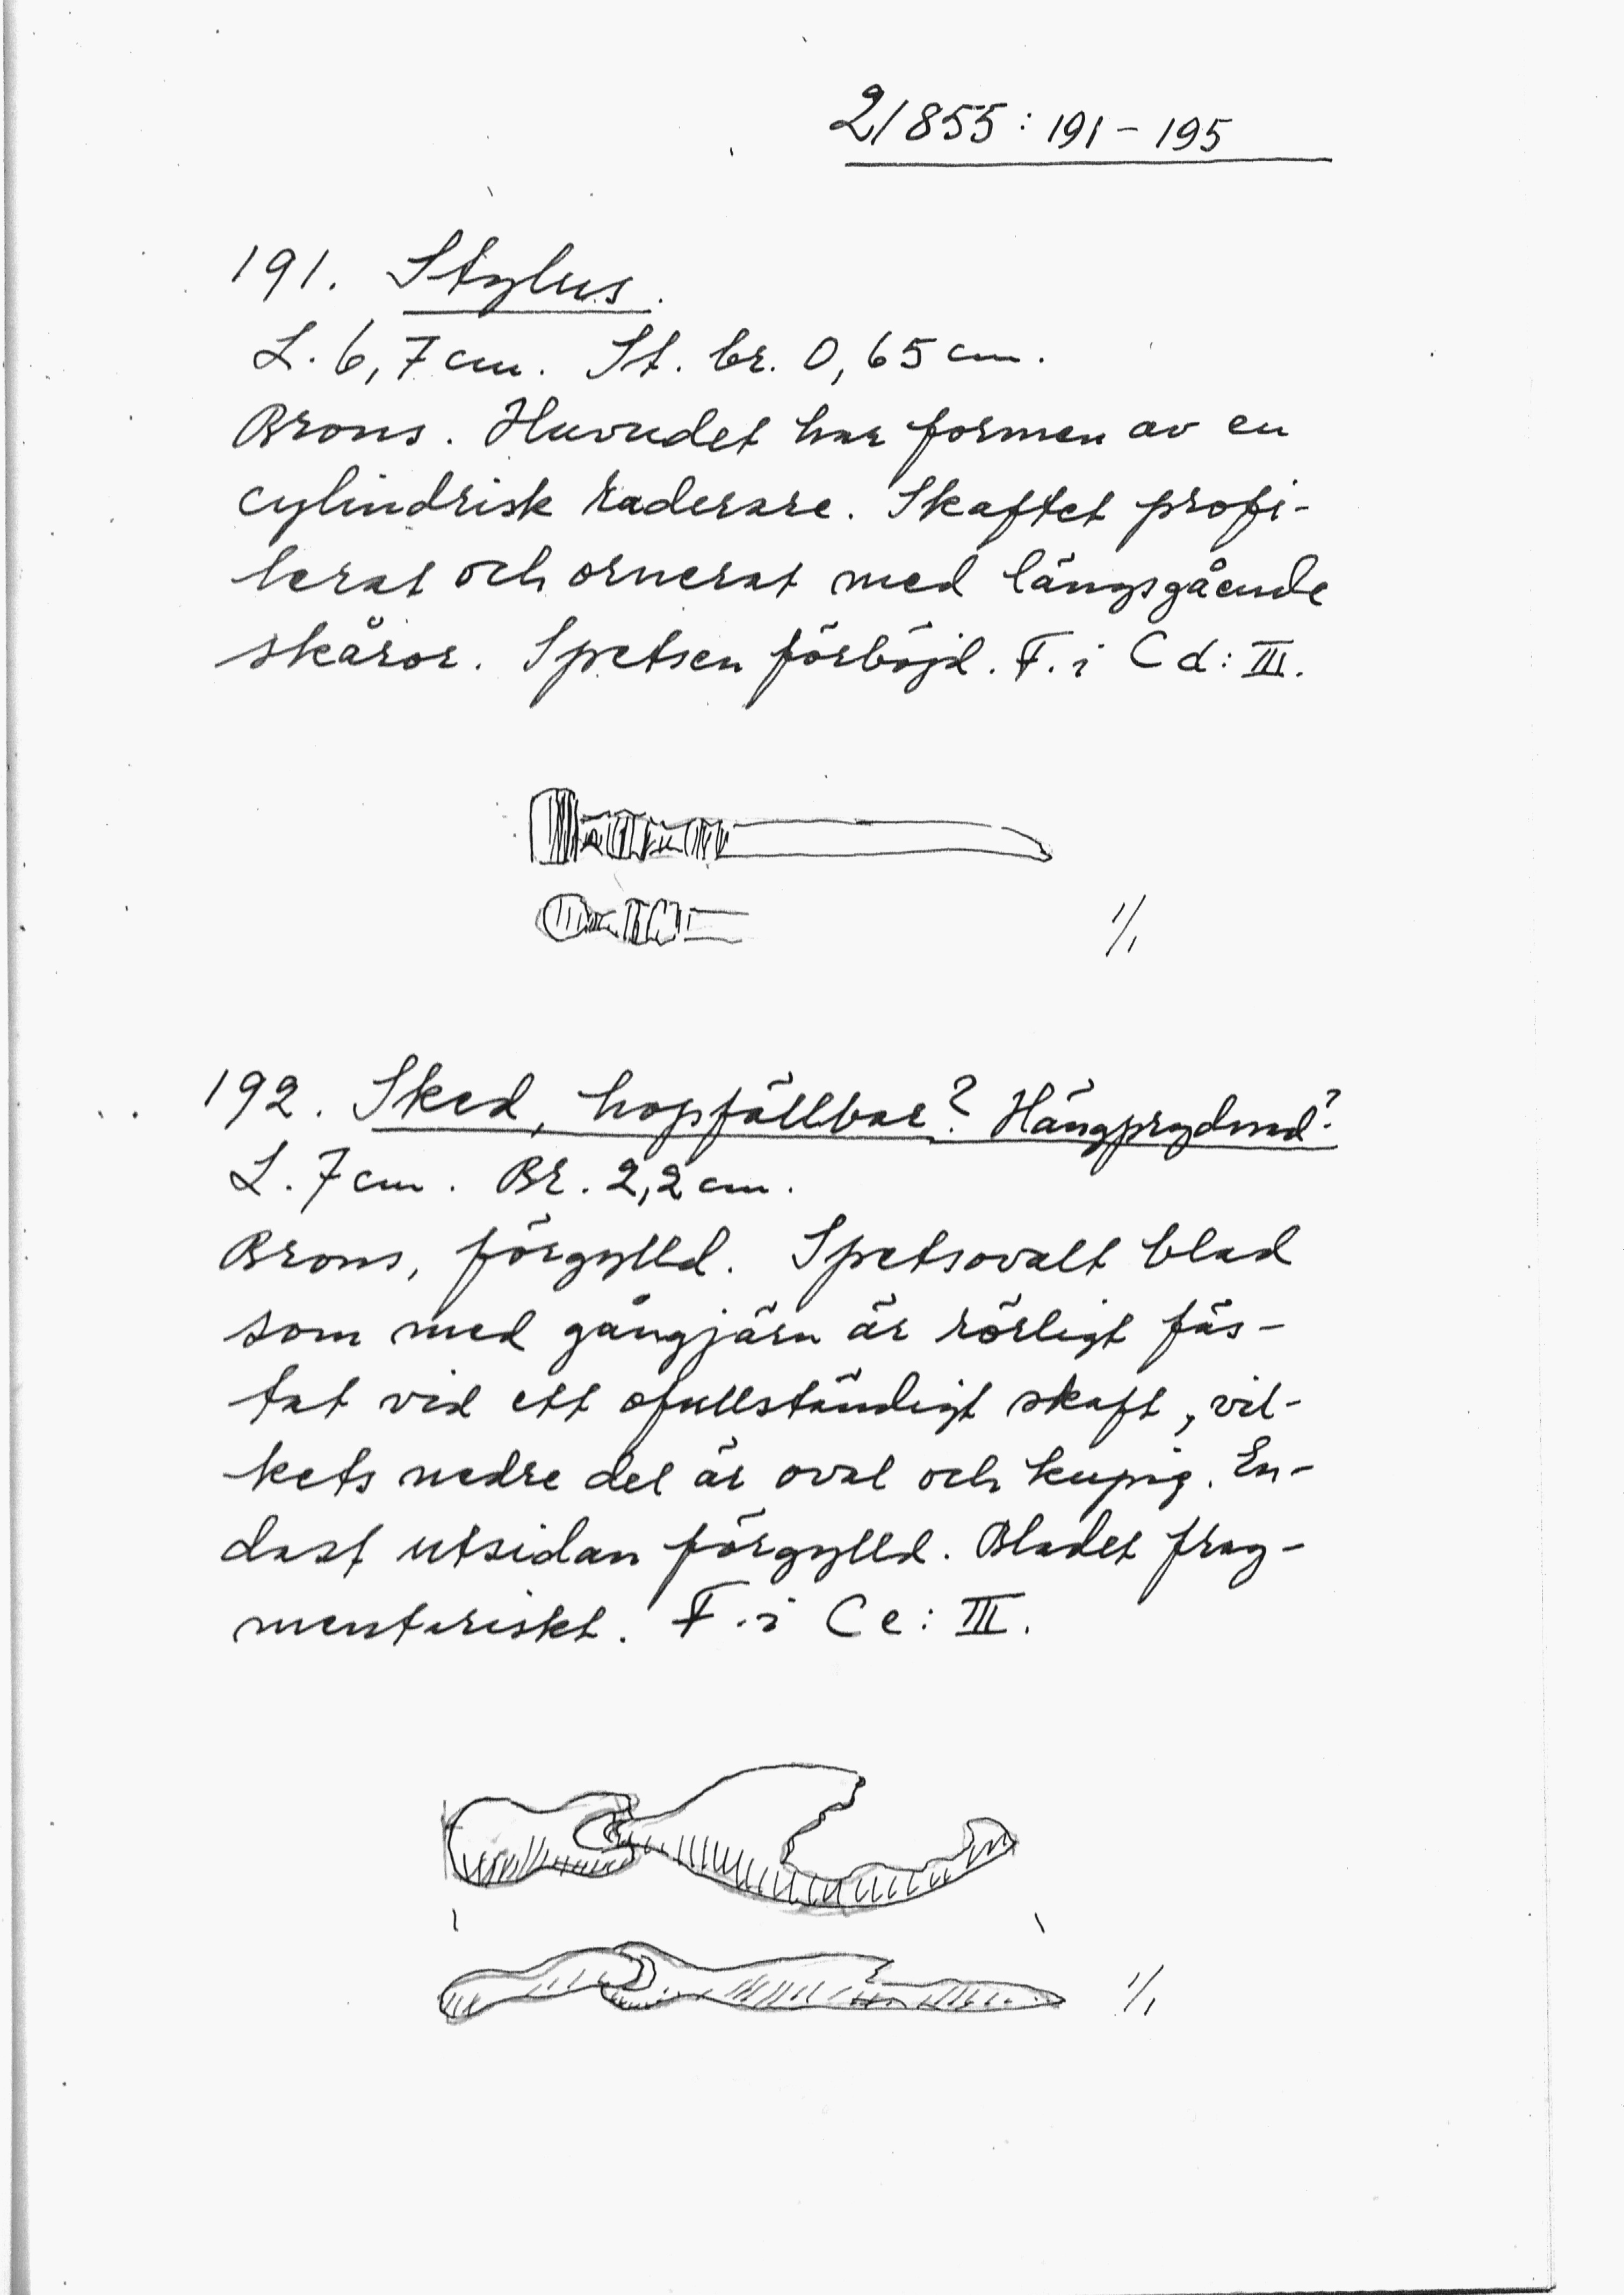 21855:191-195
191. Stylus.
L. 6,7 cm. St. br. 0,65 cm.
Brons. Huvudet har formen av en
cylindrisk raderare. Skaftet profi-
lerat och ornerat med längsgående
skåror. Spetsen förböjd. F. i Cd: III.
1/1
192. Sked, hopfällbar? Hängprydnad?
L. 7 cm. Br. 2,2 cm.
Brons, förgylld. Spetsovalt blad
som med gångjärn är rörligt fäs-
tat vid ett ofullständigt skaft, vil-
kets nedre del är oval och kupig. En-
dast utsidan förgylld. Bladet frag-
mentariskt. F. i Ce: III.
1/1